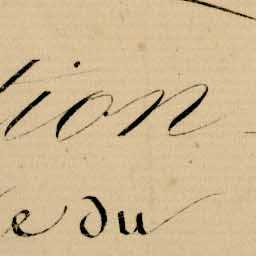 tion
e du